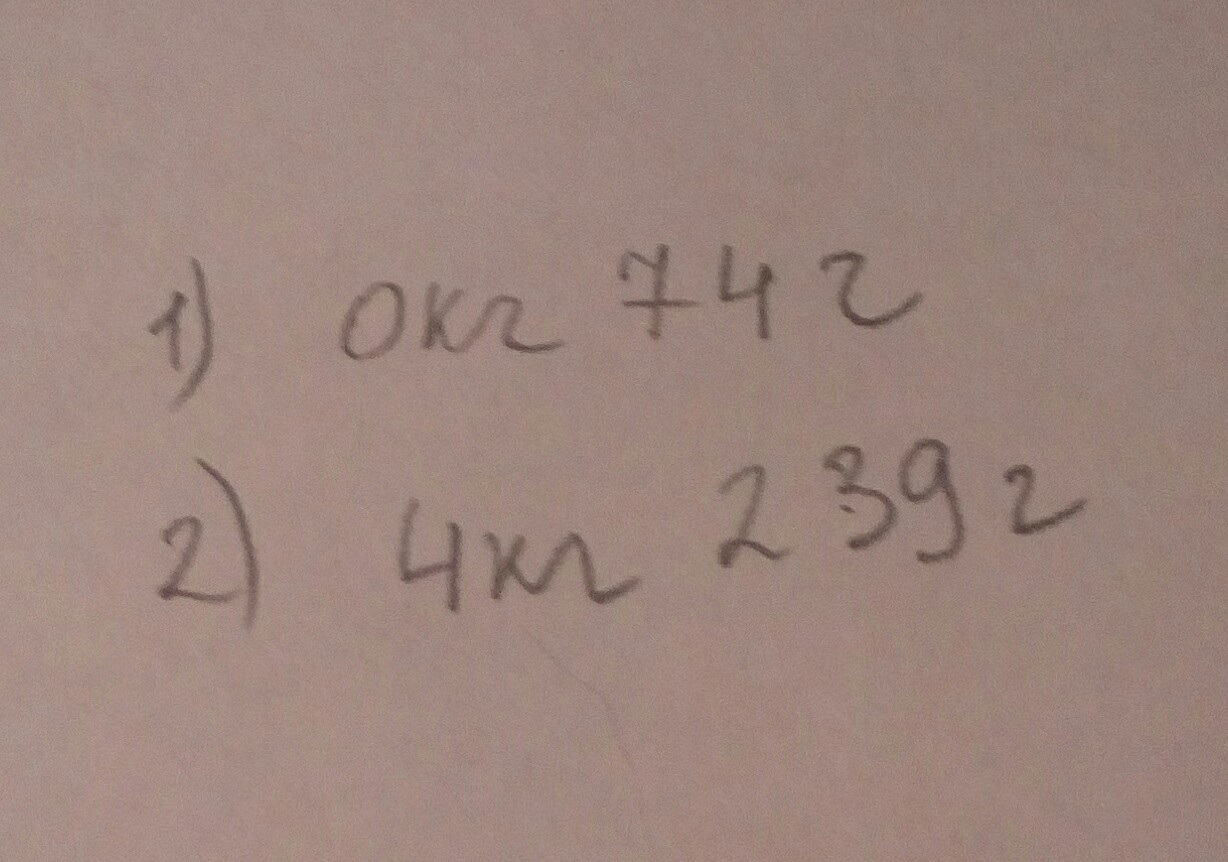 1) 0кг 74г
2) 4кг 239г